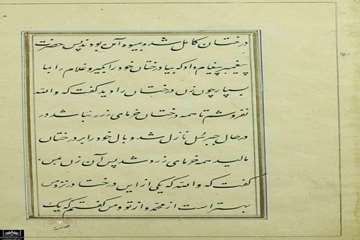 درختان کامل شد و میوه آن بود پس حضرت
پیغمبر پیغام داد که بیا درختان خود را بگیر و غلام را بما
بسپار چون زن درختان را دید گفت که والله
نفروشم تا همه درختان خرمای زرد نباشد در
در حال جبرئیل نازل شد و بال خود را بر درختان
مالید همه خرمای زرد شد پس آن زن
گفت که والله که یکی از این درختان نزد من
بهتر است از محمد و از تو و من گفتم که یک